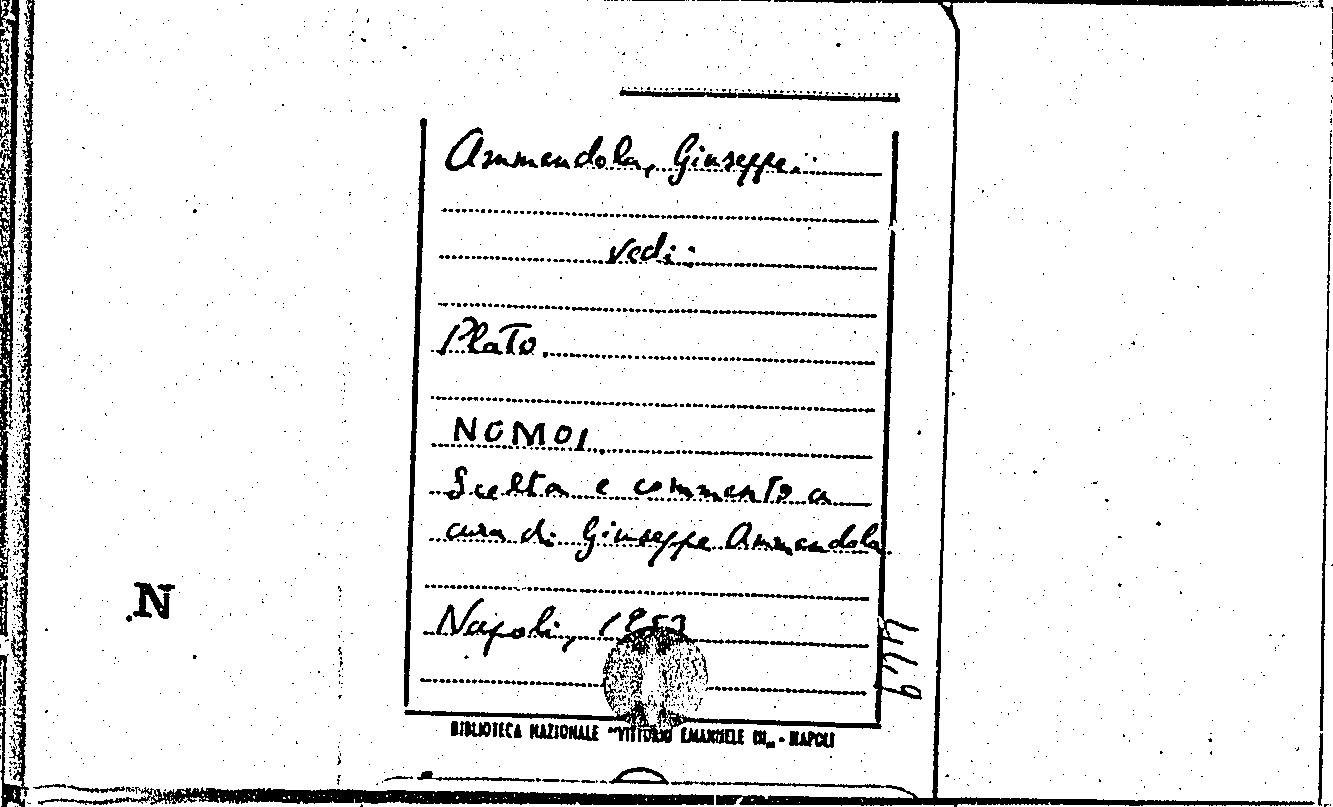 Ammendola, Giuseppe.
vedi:
Plato.
NOMOI.
Scelta e commento a
cura di Giuseppe Ammendola
N
Napoli,
BIBLIOTECA NAZIONALE "VITTORIO EMANUELE III„ - NAPOLI